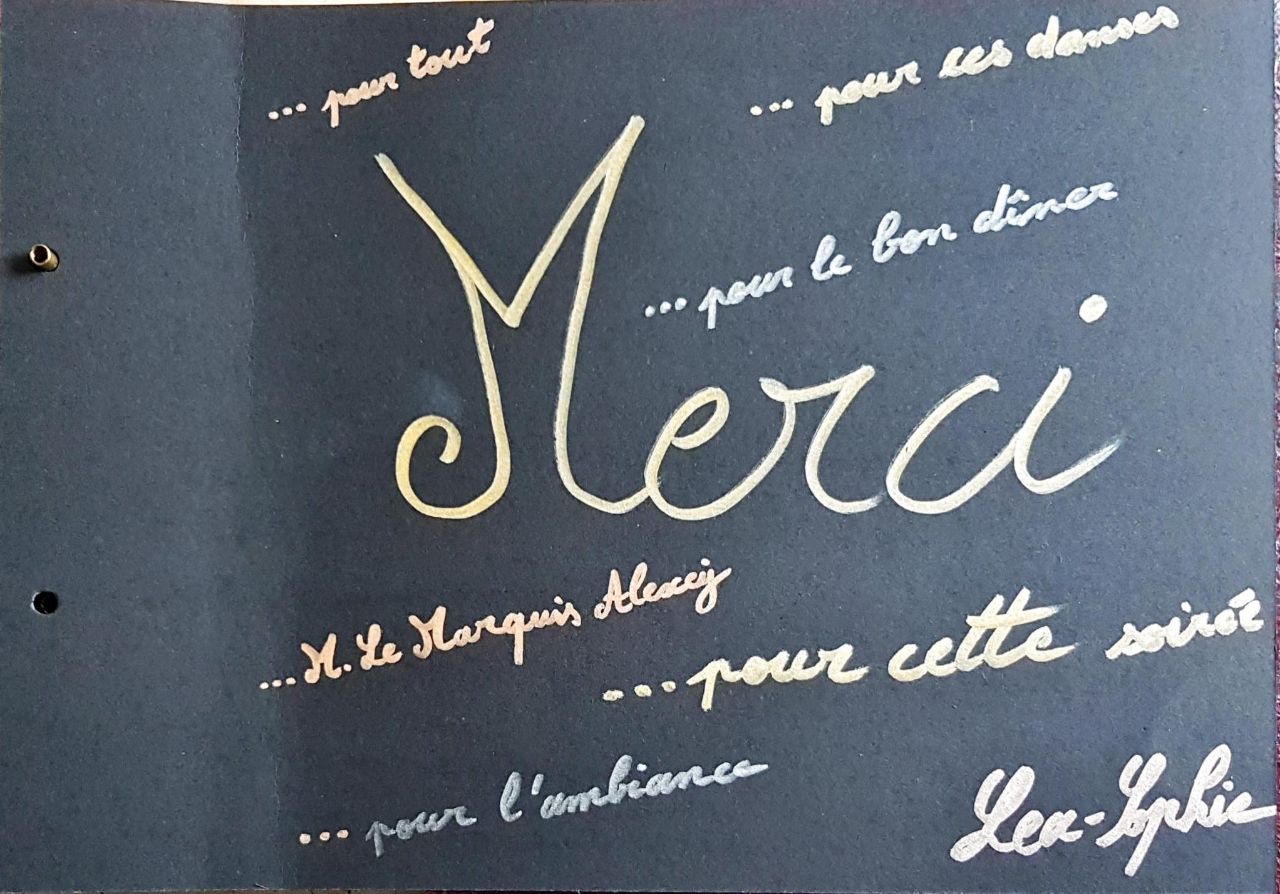 ... pour tout
... pour ces danses
... pour le bon dîner
Merci
... M. Le Marquis Alexeij
... pour cette soirée
... pour l'ambiance
Lea-Sophie